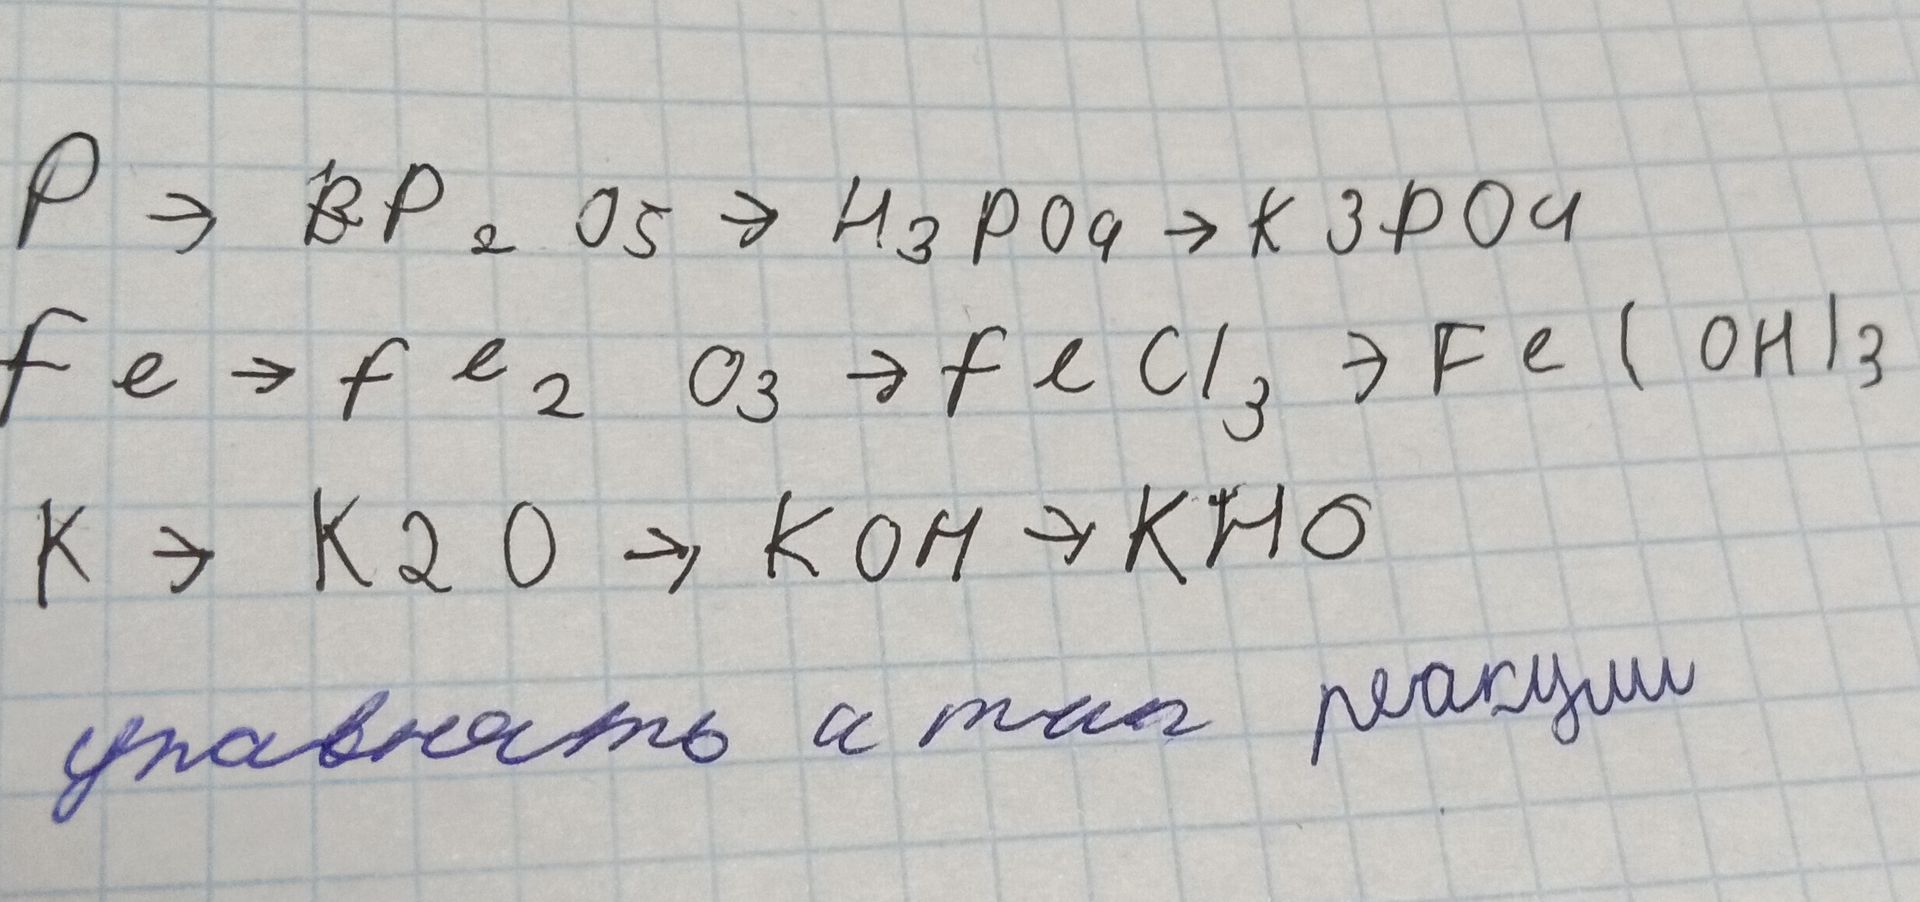 P → BP₂ O₅ → H₃PO₄ → K3PO4
Fe → Fe₂ O₃ → FeCl₃ → Fe(OH)₃
K → K2O → KOH → KHO
уравнять и тип реакции